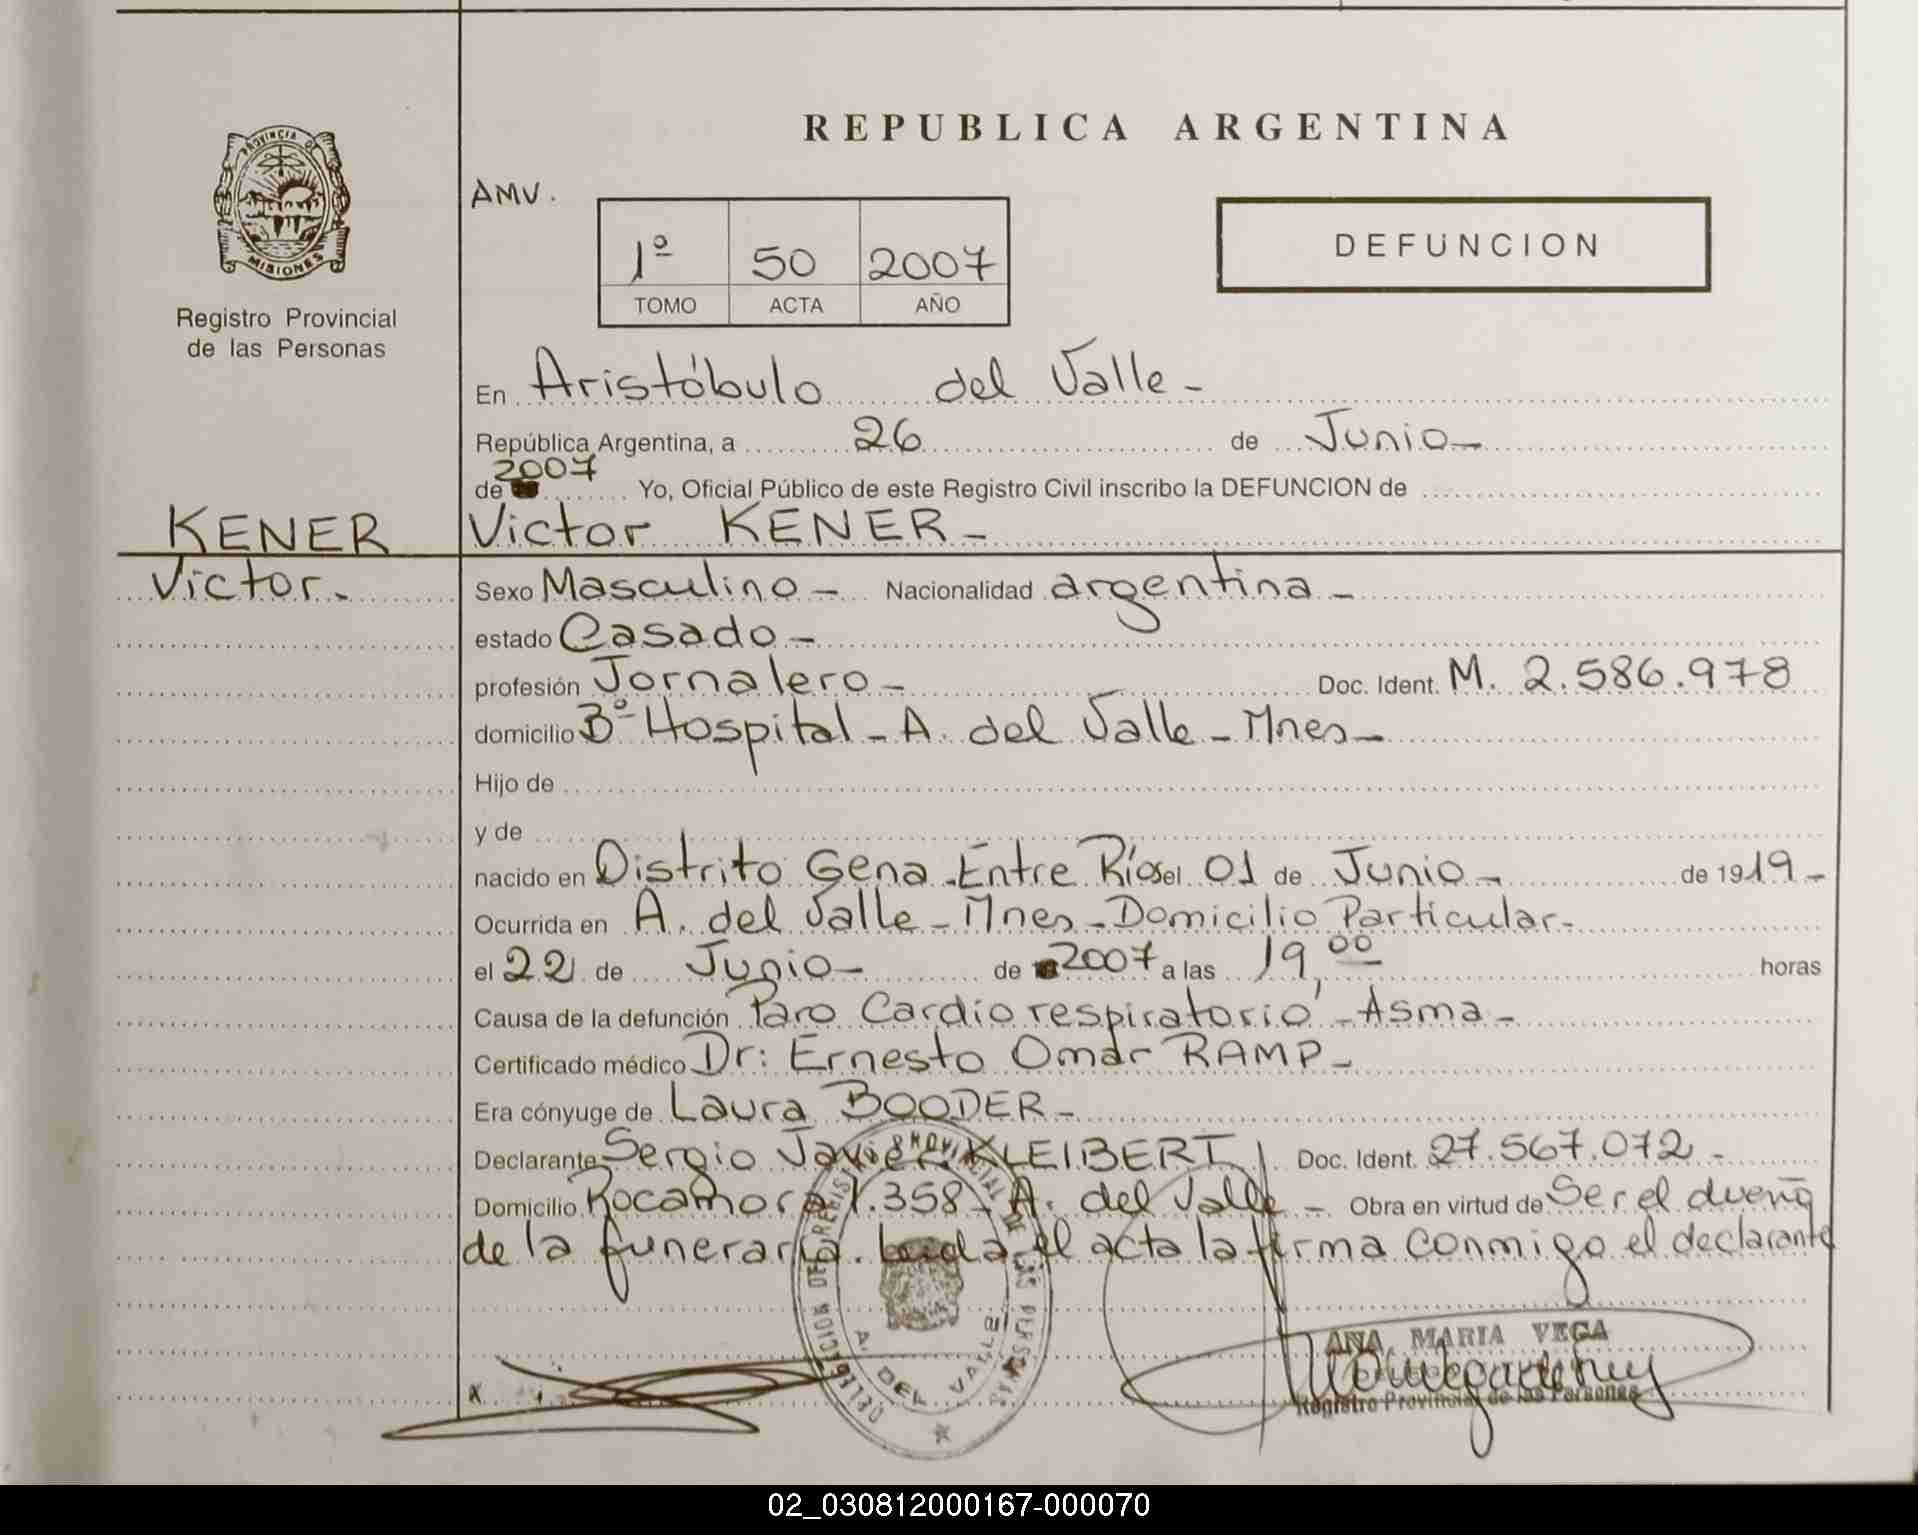 REPUBLICA ARGENTINA
PROVINCIA DE
MISIONES
Registro Provincial
de las Personas
AMV.
1º 50 2007
TOMO ACTA AÑO
DEFUNCION
En Aristóbulo del Valle -
República Argentina, a 26 de Junio -
de 2007 Yo, Oficial Público de este Registro Civil inscribo la DEFUNCION de
KENER Victor KENER -
Victor. Sexo Masculino - Nacionalidad argentina -
estado Casado -
profesión Jornalero - Doc. Ident. M. 2.586.978
domicilio Bº Hospital - A. del Valle - Mnes -
Hijo de
y de
nacido en Distrito Gena - Entre Ríos el 01 de Junio - de 1919 -
Ocurrida en A. del Valle - Mnes - Domicilio Particular -
el 22 de Junio - de 2007 a las 19,00 horas
Causa de la defunción Paro Cardiorespiratorio - Asma -
Certificado médico Dr: Ernesto Omar RAMP -
Era cónyuge de Laura BOODER -
Declarante Sergio Javier KLEIBERT Doc. Ident. 27.567.072 -
Domicilio Rocamora 1.358 - A. del Valle - Obra en virtud de Ser el dueño
de la funeraria. Leida el acta la firma conmigo el declarante
DELEGACION DEL REGISTRO PROVINCIAL DE LAS PERSONAS
A. DEL VALLE
ANA MARIA VEGA
Registro Provincial de las Personas
x
02_030812000167-000070